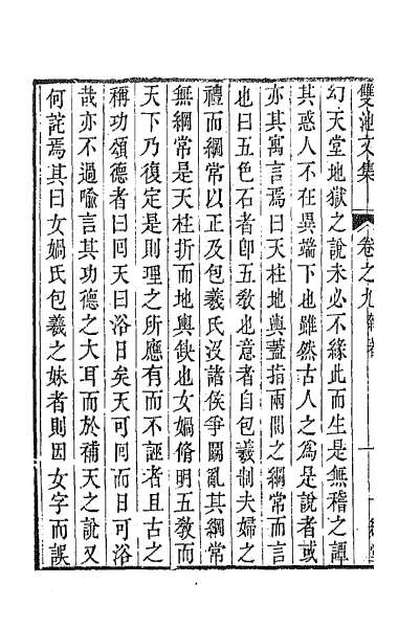 雙池文集 卷之九
幻天堂地獄之說未必不緣此而生是無稽之譚
其惑人不在異端下也雖然古人之為是說者或
亦其寓言焉曰天柱地輿蓋指兩間之綱常而言
也曰五色石者卽五敎也意者自包羲制夫婦之
禮而綱常以正及包羲氏沒諸侯爭鬭亂其綱常
無綱常是天柱折而地輿缺也女媧脩明五敎而
天下乃復定是則理之所應有而不誣者且古之
稱功頌德者曰囘天曰浴日矣天可囘而日可浴
哉亦不過喻言其功德之大耳而於補天之說又
何詫焉其曰女媧氏包羲之妹者則因女字而誤